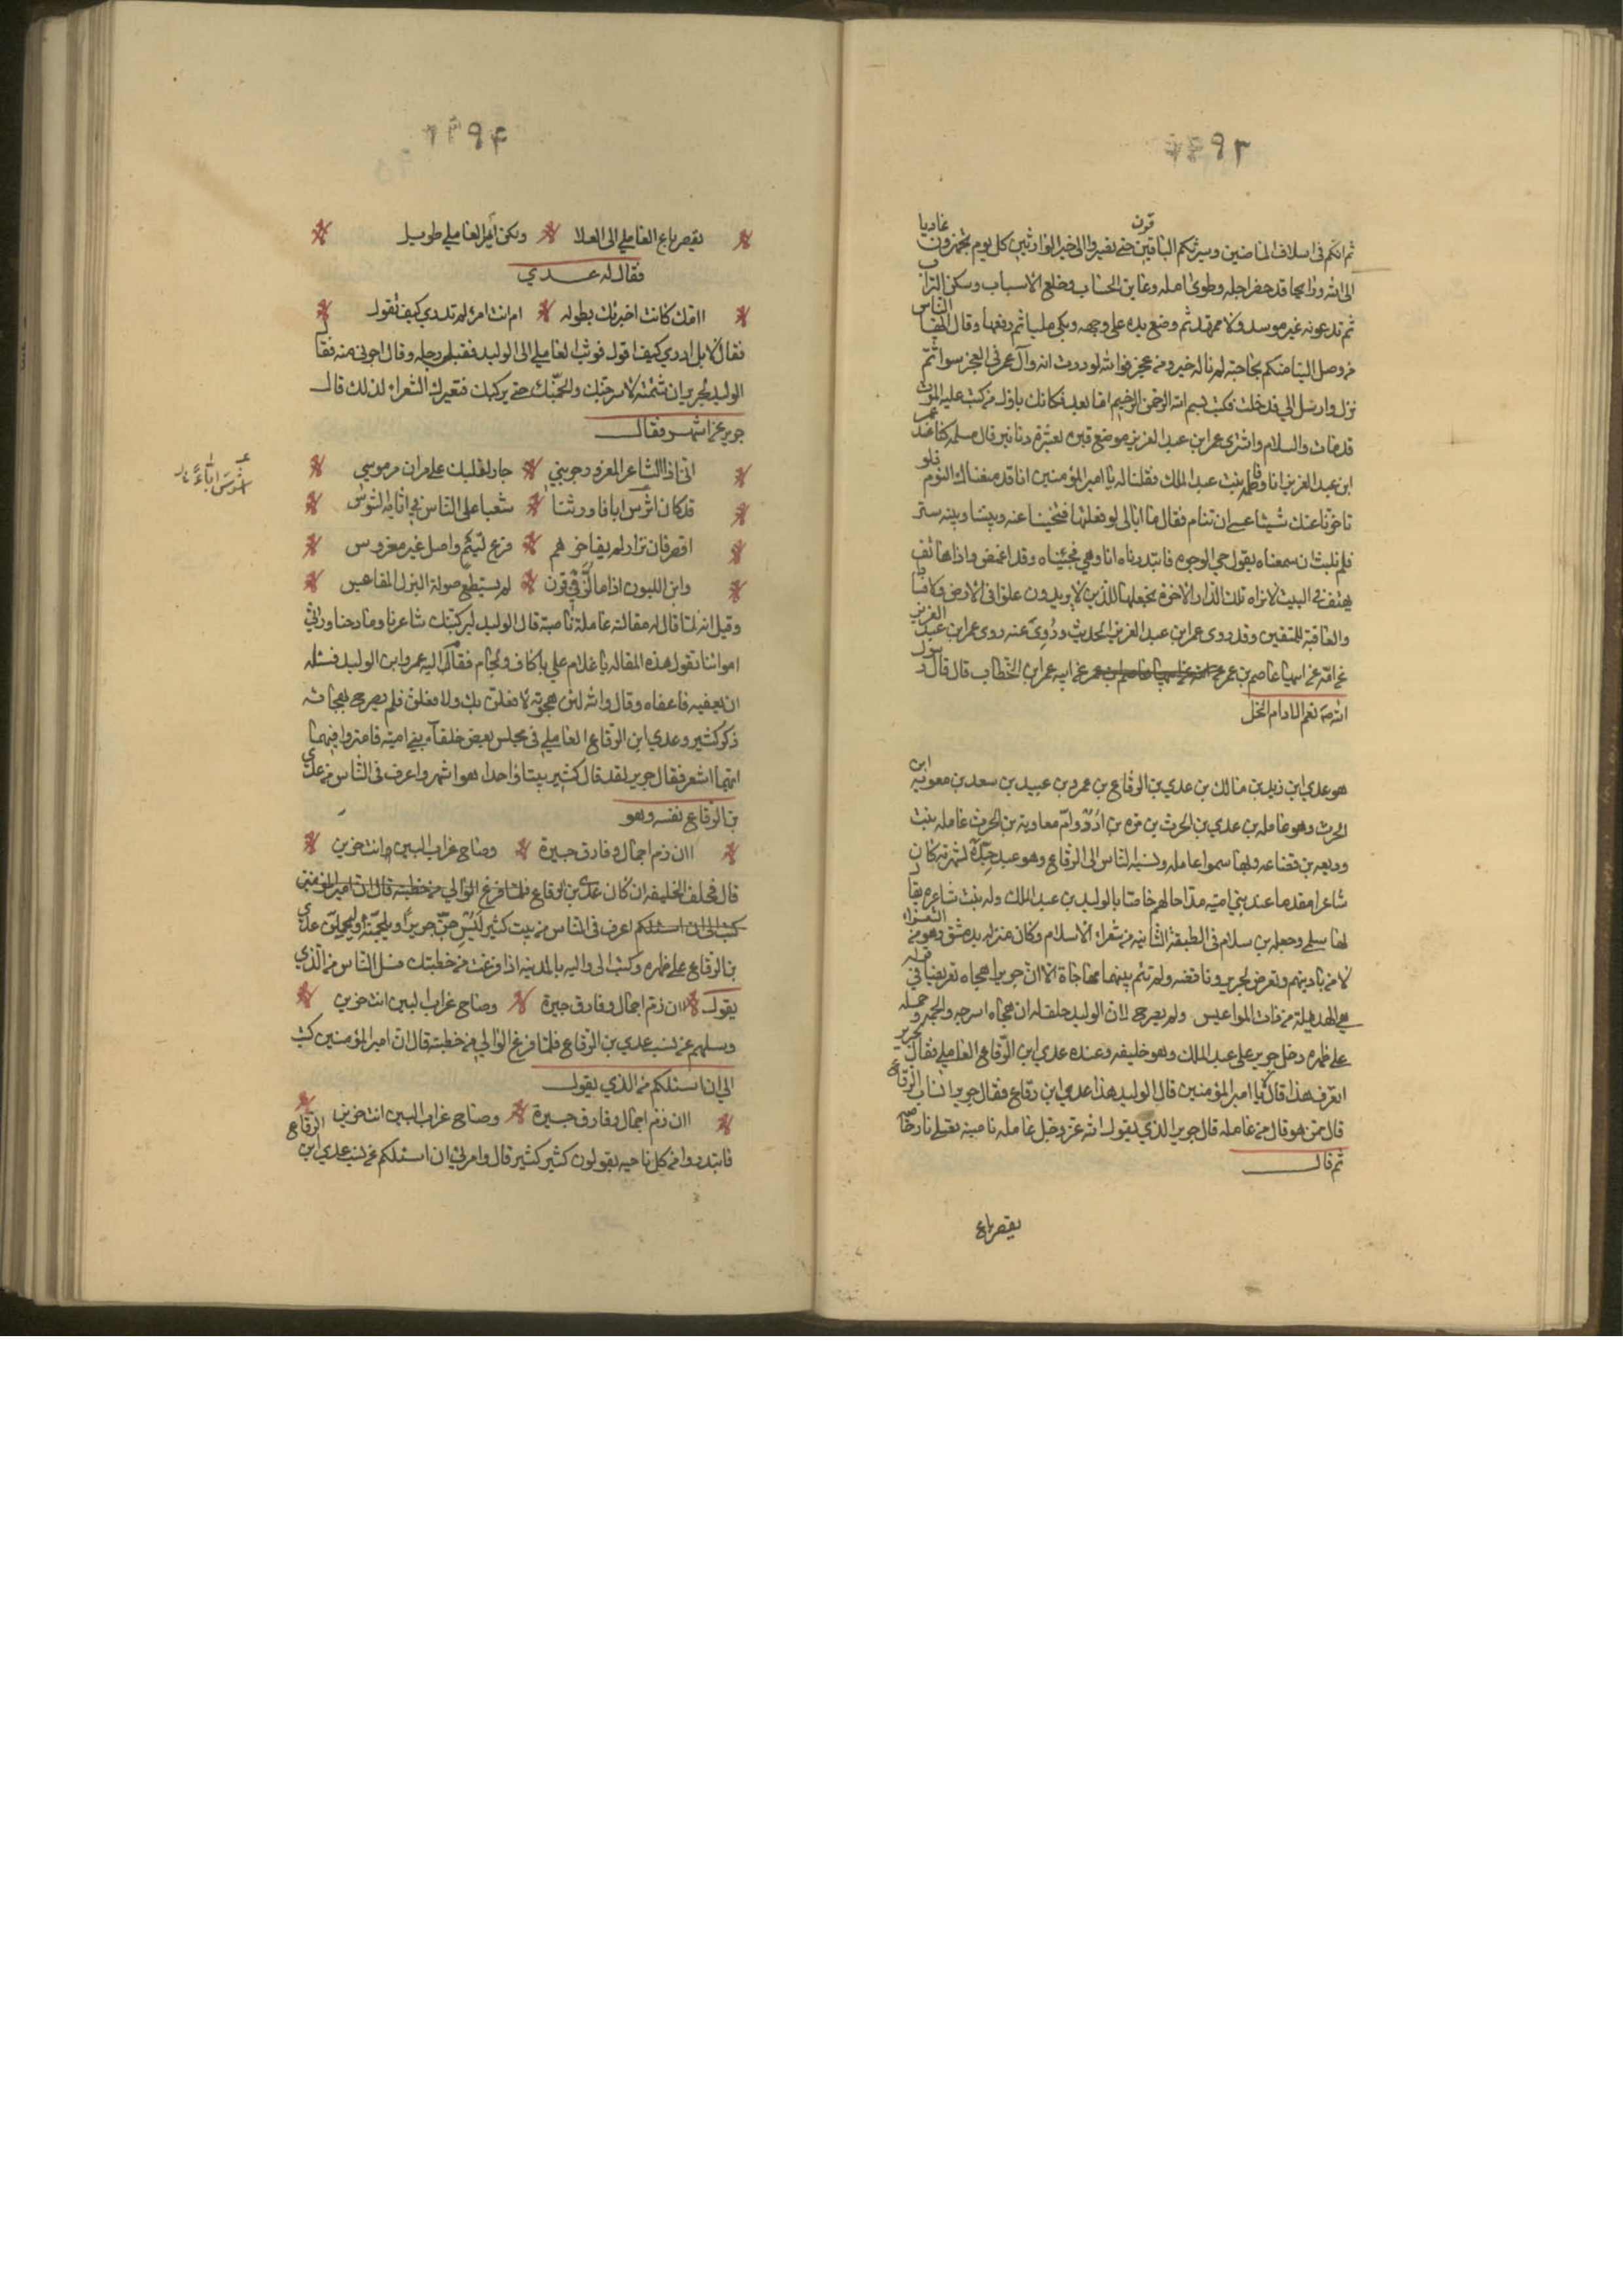 ثم انكم فى اسلاف الماضين وسيرثكم الباقين حتى نصير والى خير الوارثين كل يوم تجهزون غاديا
الى الله ورايحا قد حضر اجله وطوى عمله وعاين الحساب وخلع الاسباب وسكن التراب
ثم تدعونه غير موسد ولا ممهد ثم وضع يده على وجهه وبكى مليا ثم رفعها وقال ايها الناس
من وصل الينا منكم بحاجته لم ناله خير ومن عجز فوالله لوددت انه وآل عمر فى العجز سوا ثم
نزل وارسل الي فدخلت فكتب بسم الله الرحمن الرحيم اما بعد فكانك باول من كتب عليه الموت
قد مات والسلام واشترى عمر ابن عبد العزيز موضع قبره بعشرة دنانير قال مسلمه كنا عند عمر
ابن عبد العزيز انا وفاطمه بنت عبد الملك فقلنا له يا امير المؤمنين انا قد منعناك النوم فلو
تاخرنا عنك شيئا عسى ان تنام فقال ما ابالى لو فعلتما فتنحينا عنه وبيننا وبينه ستر
فلم نلبث ان سمعناه يقول حي الوجوه فابتدرناه انا وهي فجئناه وقد اغمض واذا هاتف
يهتف فى البيت لانراه تلك الدار الاخرة نجعلها للذين لا يريدون علوا فى الارض ولا فسادا
والعاقبة للمتقين وقد روى عمر ابن عبد العزيز الحديث وروي عنه روى عمر ابن عبد العزيز
عن امه عن ابيها عاصم بن عمر عن ابيه عمر ابن الخطاب قال قال رسول
الله صه نعم الادام الخل
هو عدي ابن زيد بن مالك بن عدي بن الرقاع بن عمرو بن عبيد بن سعد بن معويه ابن
الحرث وهو عامله بن عدي بن الحرث بن مره بن ادد وام معاوية بن الحرث عامله بنت
وديعه بن قضاعه وبها سموا عامله ونسبه الناس الى الرقاع وهو عبد جده لشهرته كان
شاعرا مقدما عند بني اميه مداحا لهم خاصا بالوليد بن عبد الملك وله بنت شاعره يقال
لها سلمى وجعله بن سلام فى الطبقة الثانيه من شعراء الاسلام وكان منزله بدمشق وهو من الشعراء
لا من باديتهم وتعرض لجرير وناقضه ولم تتم بينهما مهاجاة الا ان جريرا هجاه تعريضا فى قوله
حي الهدملة من ذات المواعيس ولم يصرح لان الوليد حلف له ان هجاه اسرجه والجمه وحمله
على ظهره دخل جرير على عبد الملك وهو خليفه وعنده عدي ابن الرقاع العاملي فقال لجرير
اتعرف هذا قال لا يا امير المؤمنين قال الوليد هذا عدي ابن رقاع فقال جرير الثياب الرقاع
قال ممن هو قال من عامله قال جرير الذي يقول الله عز وجل عامله ناصبه تصلى نارا حاميه
ثم قال
يقصر باع
يقصر باع العاملي الى العلا ولكن اير العاملي طويل
فقال له عدي
اامك كانت اخبرتك بطوله ام انت امرئ لم تدري كيف تقول
فقال لا بل ادري كيف اقول فوثب العاملي الى الوليد فقبل رجله وقال اجرني منه فقال
الوليد لجرير ان شتمته لاسرجنك والجمنك حتى يركبك فتعيرك الشعراء لذلك قال
جرير عن اشهر فقال
انى اذا الشاعر المغرور جربني جار لقبلك على مران مرموس
قد كان اشوس ابا فاورثنا شغبا على الناس فى ابنائه الشوس
اقصر فان نزار لم يفاخرهم فرع لئيم واصل غير مغروس
وابن اللبون اذا ما لز فى قرن لم يستطع صولة البزل المقاعيس
وقيل انه لما قال له مقالته عاملة ناصبة قال الوليد ليركبنك شاعرنا ومادحنا وراثي
امواتنا تقول هذه المقاله يا غلام علي باكاف ولجام فقام اليه عمر وابن الوليد فسئله
ان يعفيه فاعفاه وقال والله لئن هجوته لا فعلن بك ولا فعلن فلم يصرح بهجائه
ذكر كثير وعدي ابن الرقاع العاملي فى مجلس بعض خلفاء بني اميه فامتروا فيهما
ايهما اشعر فقال جرير لقد قال كثير بيتا واحدا هو اشهر واعرف فى الناس من عدي
بن الرقاع نفسه وهو
اان زم اجمال وفارق جيرة وصاح غراب البين وانت حزين
قال فحلف الخليفه ان كان عدي بن الرقاع فلما فرغ الوالي من خطبته قال ان امير المومنين
كتب الى ان اسئلكم اعرف فى الناس من بيت كثير ليسرجن جريرا وليلجمنه وليحملن عدي
بن الرقاع على ظهره وكتب الى واليه بالمدينه اذا فرغت من خطبتك فسل الناس من الذي
يقول اان زم اجمال وفارق جيرة وصاح غراب البين انت حزين
وسلهم عن نسب عدي بن الرقاع فلما فرغ الوالي من خطبته قال ان امير المؤمنين كتب
الي ان اسئلكم من الذي يقول
اان زم اجمال وفارق جيرة وصاح غراب البين انت حزين
فابتدروا من كل ناحيه يقولون كثير كثير قال وامرني ان اسئلكم عن نسب عدي ابن الرقاع